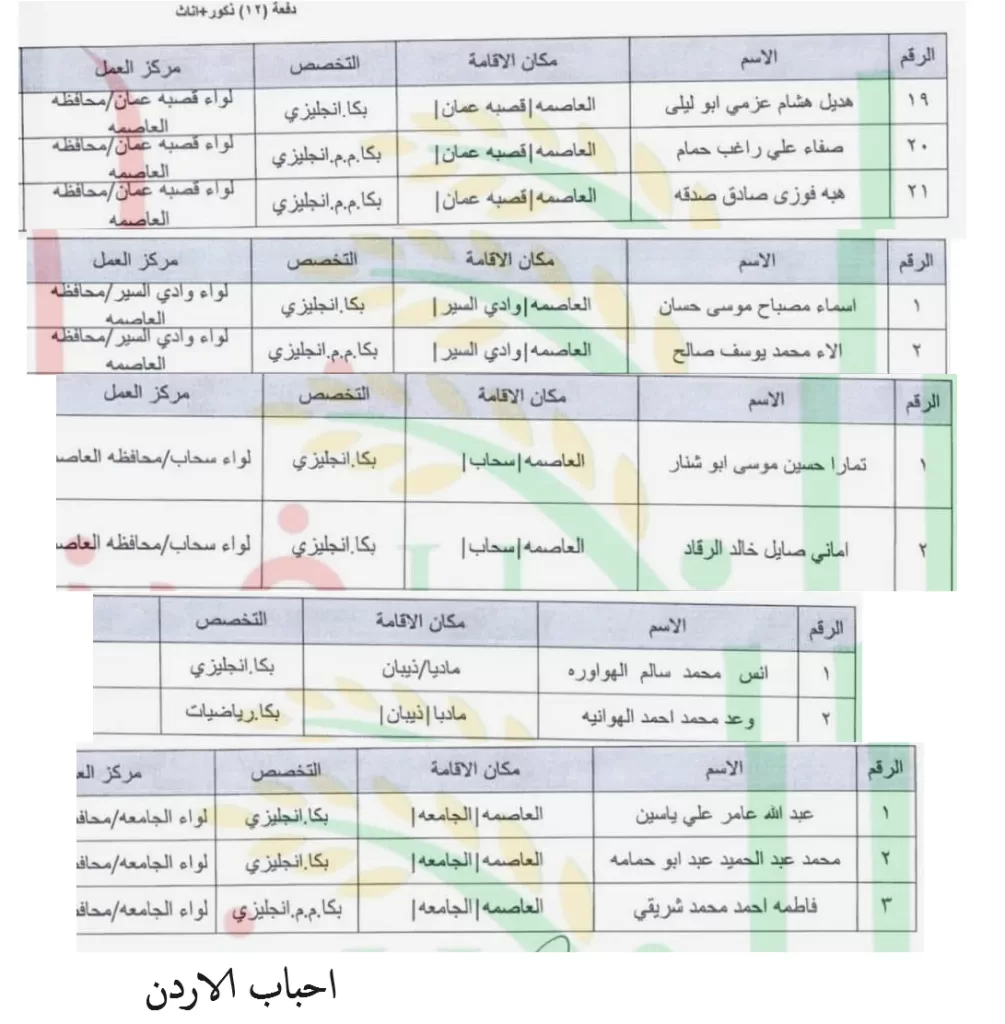 دفعة (١٢) ذكور+اناث
الرقم الاسم مكان الاقامة التخصص مركز العمل
١٩ هديل هشام عزمي ابو ليلى العاصمه|قصبه عمان| بكا.انجليزي لواء قصبه عمان/محافظه
العاصمه
٢٠ صفاء علي راغب حمام العاصمه|قصبه عمان| بكا.م.م.انجليزي لواء قصبه عمان/محافظه
العاصمه
٢١ هبه فوزي صادق صدقه العاصمه|قصبه عمان| بكا.م.م.انجليزي لواء قصبه عمان/محافظه
العاصمه
الرقم الاسم مكان الاقامة التخصص مركز العمل
١ اسماء مصباح موسى حسان العاصمه|وادي السير| بكا.انجليزي لواء وادي السير/محافظه
العاصمه
٢ الاء محمد يوسف صالح العاصمه|وادي السير| بكا.م.م.انجليزي لواء وادي السير/محافظه
العاصمه
الرقم الاسم مكان الاقامة التخصص مركز العمل
١ تمارا حسين موسى ابو شنار العاصمه|سحاب| بكا.انجليزي لواء سحاب/محافظه العاصم
٢ اماني صايل خالد الرقاد العاصمه|سحاب| بكا.انجليزي لواء سحاب/محافظه العاصم
الرقم الاسم مكان الاقامة التخصص
١ انس محمد سالم الهواوره مادبا/ذيبان بكا.انجليزي
٢ وعد محمد احمد الهوانيه مادبا|ذيبان| بكا.رياضيات
الرقم الاسم مكان الاقامة التخصص مركز الع
١ عبد الله عامر علي ياسين العاصمه|الجامعه| بكا.انجليزي لواء الجامعه/محاف
٢ محمد عبد الحميد عبد ابو حمامه العاصمه|الجامعه| بكا.انجليزي لواء الجامعه/محاف
٣ فاطمه احمد محمد شريقي العاصمه|الجامعه| بكا.م.م.انجليزي لواء الجامعه/محاف
احباب الاردن